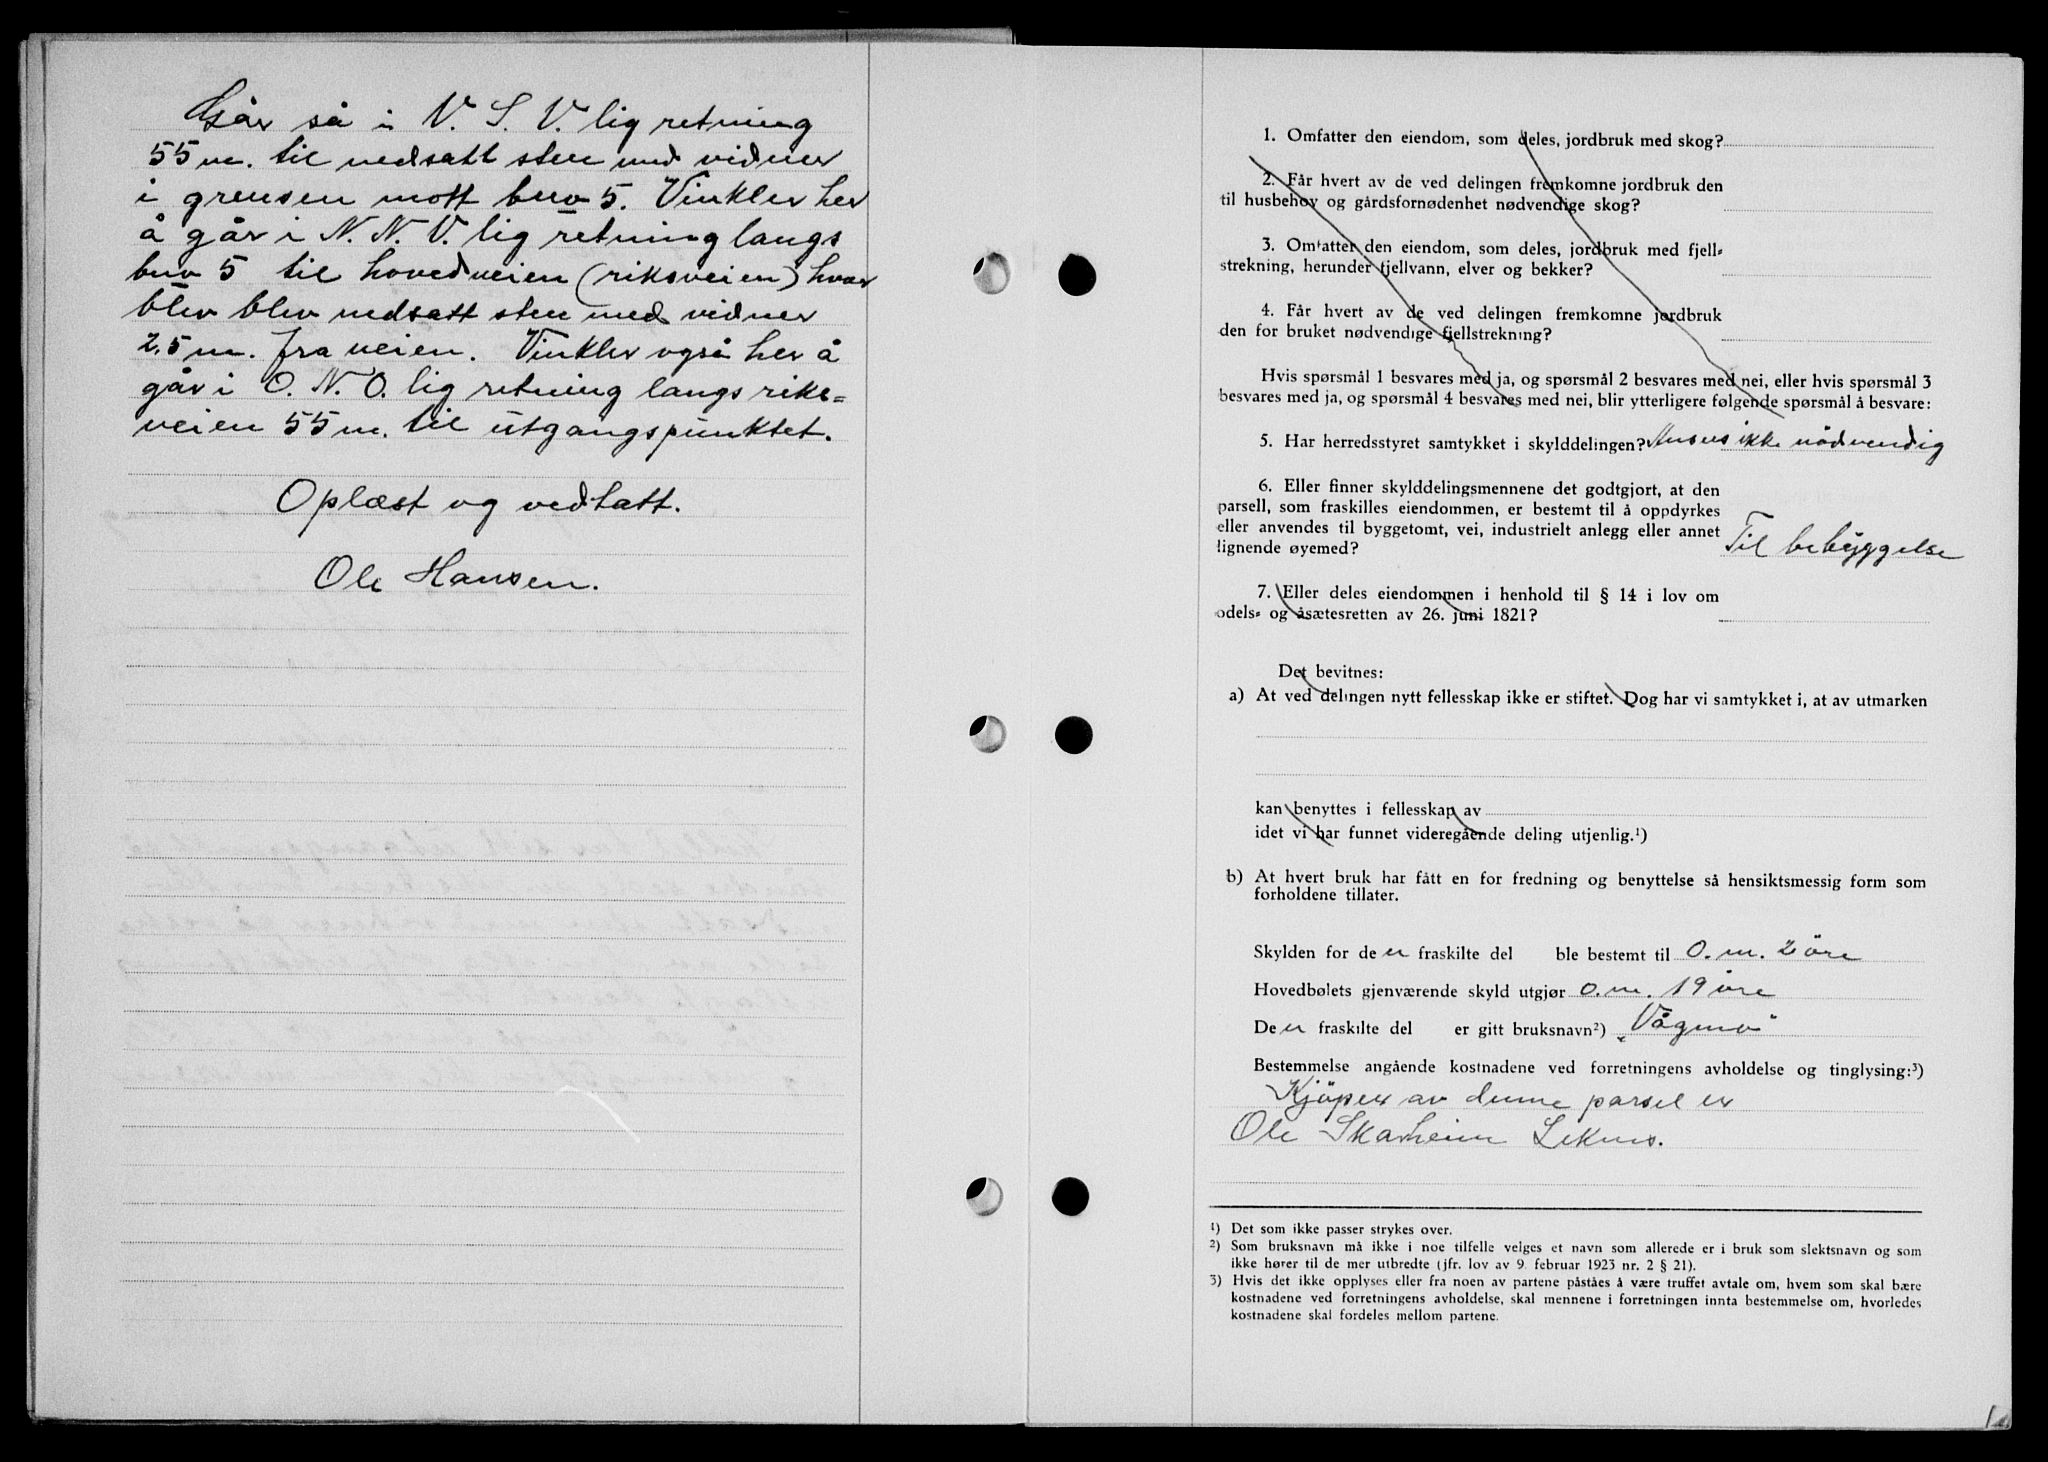 Går så i V. S. V. lig retning
55 m. til nedsatt sten med vidner
i grensen mott bno 5. Vinkler her
å går i N. N. V. lig retning langs
bno 5 til hovedveien (riksveien) hvor
blev blev nedsatt sten med vidner
2,5 m. fra veien. Vinkler også her å
går i O. N. O. lig retning langs riks=
veien 55 m. til utgangspunktet.
Oplæst og vedtatt.
Ole Hansen.
1. Omfatter den eiendom, som deles, jordbruk med skog?
2. Får hvert av de ved delingen fremkomne jordbruk den
til husbehov og gårdsfornødenhet nødvendige skog?
3. Omfatter den eiendom, som deles, jordbruk med fjell=
strekning, herunder fjellvann, elver og bekker?
4. Får hvert av de ved delingen fremkomne jordbruk
den for bruket nødvendige fjellstrekning?
Hvis spørsmål 1 besvares med ja, og spørsmål 2 besvares med nei, eller hvis spørsmål 3
besvares med ja, og spørsmål 4 besvares med nei, blir ytterligere følgende spørsmål å besvare:
5. Har herredsstyret samtykket i skylddelingen? Anses ikke nödvendig
6. Eller finner skylddelingsmennene det godtgjort, at den
parsell, som fraskilles eiendommen, er bestemt til å oppdyrkes
eller anvendes til byggetomt, vei, industrielt anlegg eller annet
lignende øyemed? Til bebyggelse
7. Eller deles eiendommen i henhold til § 14 i lov om
odels= og åsætesretten av 26. juni 1821?
Det bevitnes:
a) At ved delingen nytt fellesskap ikke er stiftet. Dog har vi samtykket i, at av utmarken
kan benyttes i fellesskap av
idet vi har funnet videregående deling utjenlig.¹)
b) At hvert bruk har fått en for fredning og benyttelse så hensiktsmessig form som
forholdene tillater.
Skylden for de er fraskilte del ble bestemt til 0. m. 2 öre
Hovedbølets gjenværende skyld utgjør 0. m. 19 öre
De er fraskilte del er gitt bruksnavn²) „Vågmo"
Bestemmelse angående kostnadene ved forretningens avholdelse og tinglysing:³)
Kjöper av denne parsel er
Ole Skarheim Leknes.
¹) Det som ikke passer strykes over.
²) Som bruksnavn må ikke i noe tilfelle velges et navn som allerede er i bruk som slektsnavn og som
ikke hører til de mer utbredte (jfr. lov av 9. februar 1923 nr. 2 § 21).
³) Hvis det ikke opplyses eller fra noen av partene påståes å være truffet avtale om, hvem som skal bære
kostnadene ved forretningens avholdelse, skal mennene i forretningen innta bestemmelse om, hvorledes
kostnadene skal fordeles mellom partene.